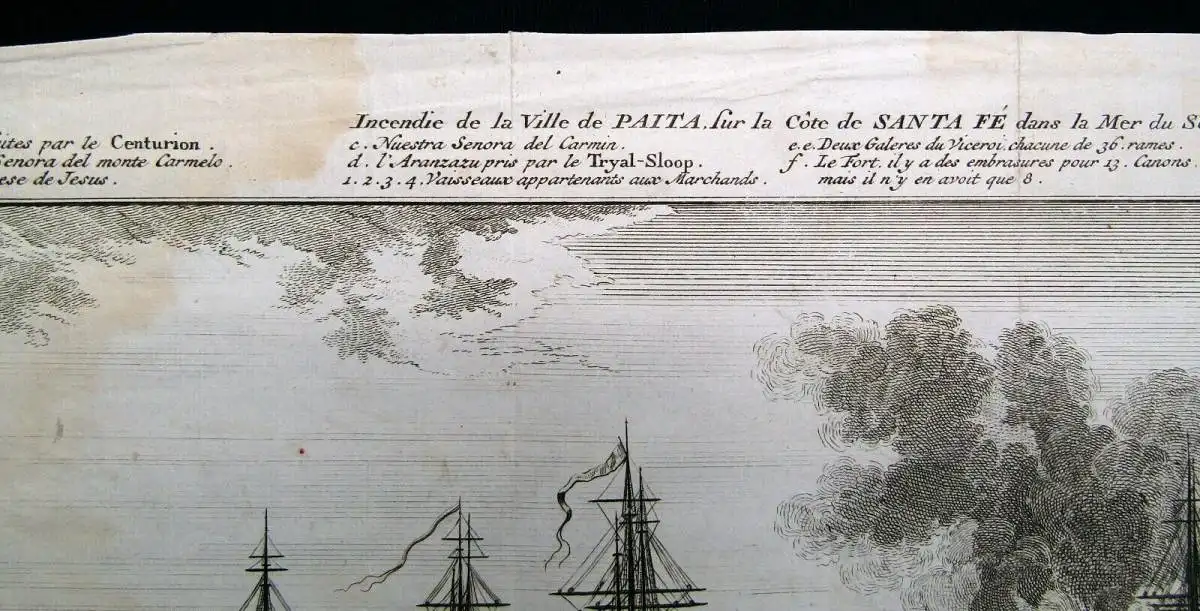 Incendie de la Ville de PAITA, sur la Côte de SANTA FÉ dans la Mer du
par le Centurion.
Senora del monte Carmelo.
de Jesus.
c. Nuestra Senora del Carmin.
d. l'Aranzazu pris par le Tryal-Sloop.
1. 2. 3. 4. Vaisseaux appartenants aux Marchands.
e.e. Deux Galeres du Viceroi, chacune de 36. rames.
f. Le Fort, il y a des embrasures pour 13. Canons.
mais il n'y en avoit que 8.